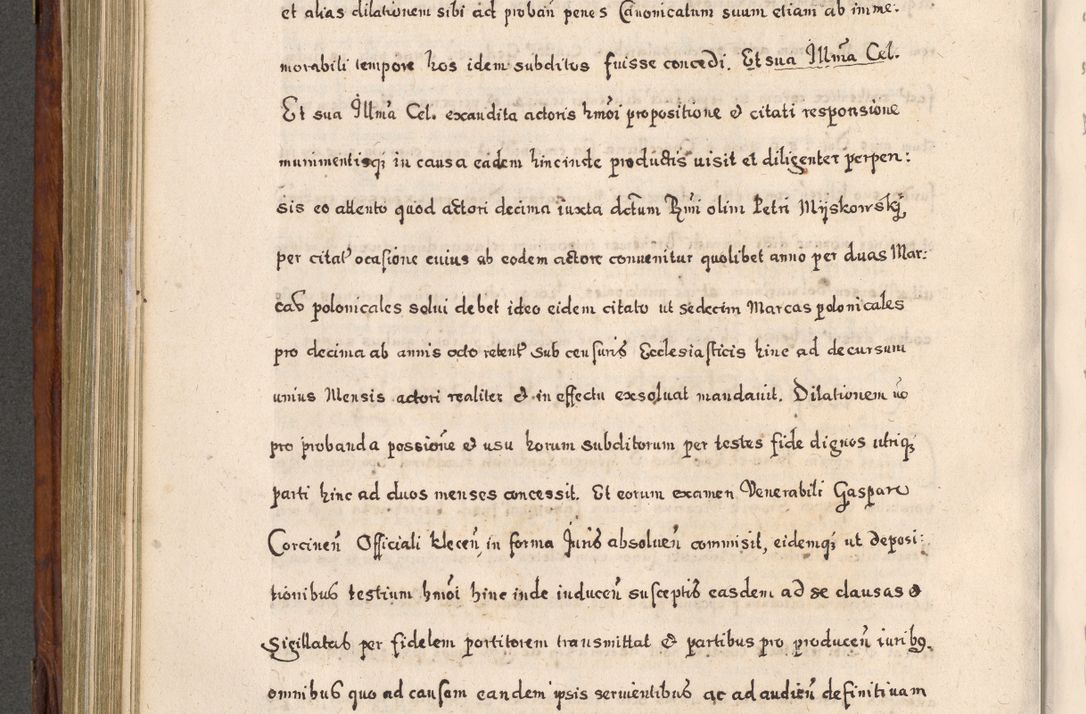 et alias dilationem sibi ad proban̄ penes Canonicatum suum etiam ab imme:
morabili tempore hos idem subditos fuisse concedi. Et sua Illma Cel.
Et sua Illma Cel. exaudita actoris hmōi propositione & citati responsione
munimentisq; in causa eadem hincinde productis uisit et diligenter perpen:
sis eo attento quod actori decima iuxta dctum Rmi olim Petri Mijskowskj,
per citat ocasione cuius ab eodem actore conuenitur quolibet anno per duas Mar:
cas polonicales solui debet ideo eidem citato ut sedecim Marcas polonicales
pro decima ab annis octo retent sub censuris Ecclesiasticis hinc ad decursum
unius Mensis actori realiter & in effectu exsoluat mandauit. Dilationem uo
pro probanda possione & usu horum subditorum per testes fide dignos utriq;
parti hinc ad duos menses concessit. Et eorum examen Venerabili Gaspare
Corcinen̄ Officiali klecen̄ in forma Juris absoluen̄ commisit, eidemq; ut deposi:
tionibus testium hmōi hinc inde inducen̄ susceptis easdem ad se clausas &
sigillatas per fidelem portitorem transmittat & partibus pro producen̄ iurib9.
omnibus quo ad causam eandem ipsis seruientibus ac ad audien̄ definitiuam